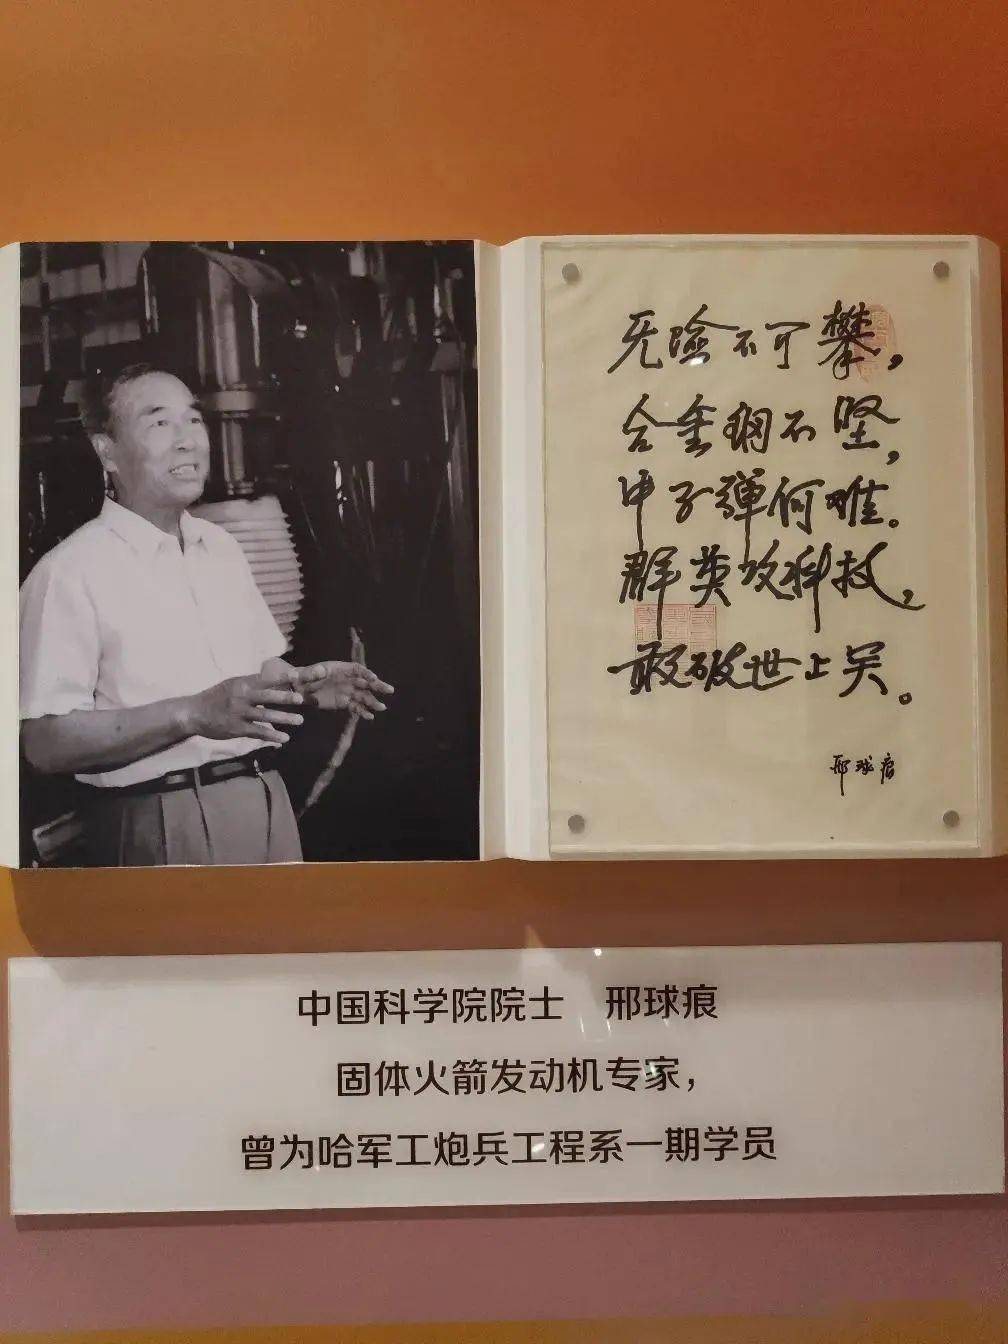 无险不可攀，
合金钢不坚，
中子弹何难。
群英攻科技，
敢破世上关。
邢球痕
中国科学院院士 邢球痕
固体火箭发动机专家，
曾为哈军工炮兵工程系一期学员